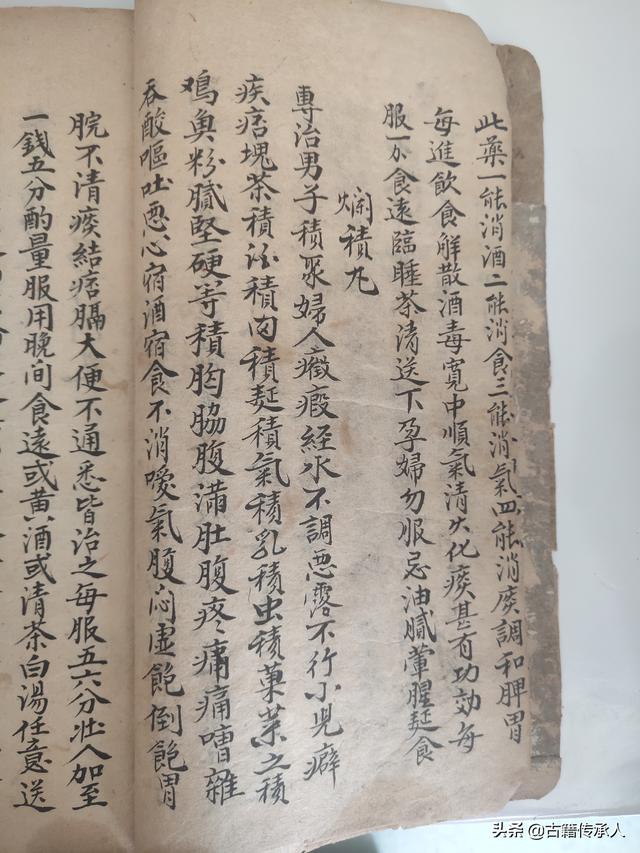 此藥一能消酒二能消食三能消氣四能消痰調和脾胃
每進飲食解散酒毒寬中順氣清火化痰甚有功効每
服一分食遠臨睡茶清送下孕婦勿服忌油膩葷腥麵食
爛積丸
專治男子積聚婦人癥瘕經水不調惡露不行小兒癖
疾痞塊茶積酒積肉積麵積氣積乳積虫積菓菜之積
鳮魚粉膩堅硬等積胸脇腹滿肚腹疼痛痛嘈雜
吞酸嘔吐惡心宿酒宿食不消噯氣腹悶虛飽倒飽胃
脘不清痰結痞膈大便不通悉皆治之每服五六分壯人加至
一錢五分酌量服用晚間食遠或黄酒或清茶白湯任意送
头条 @古籍传承人